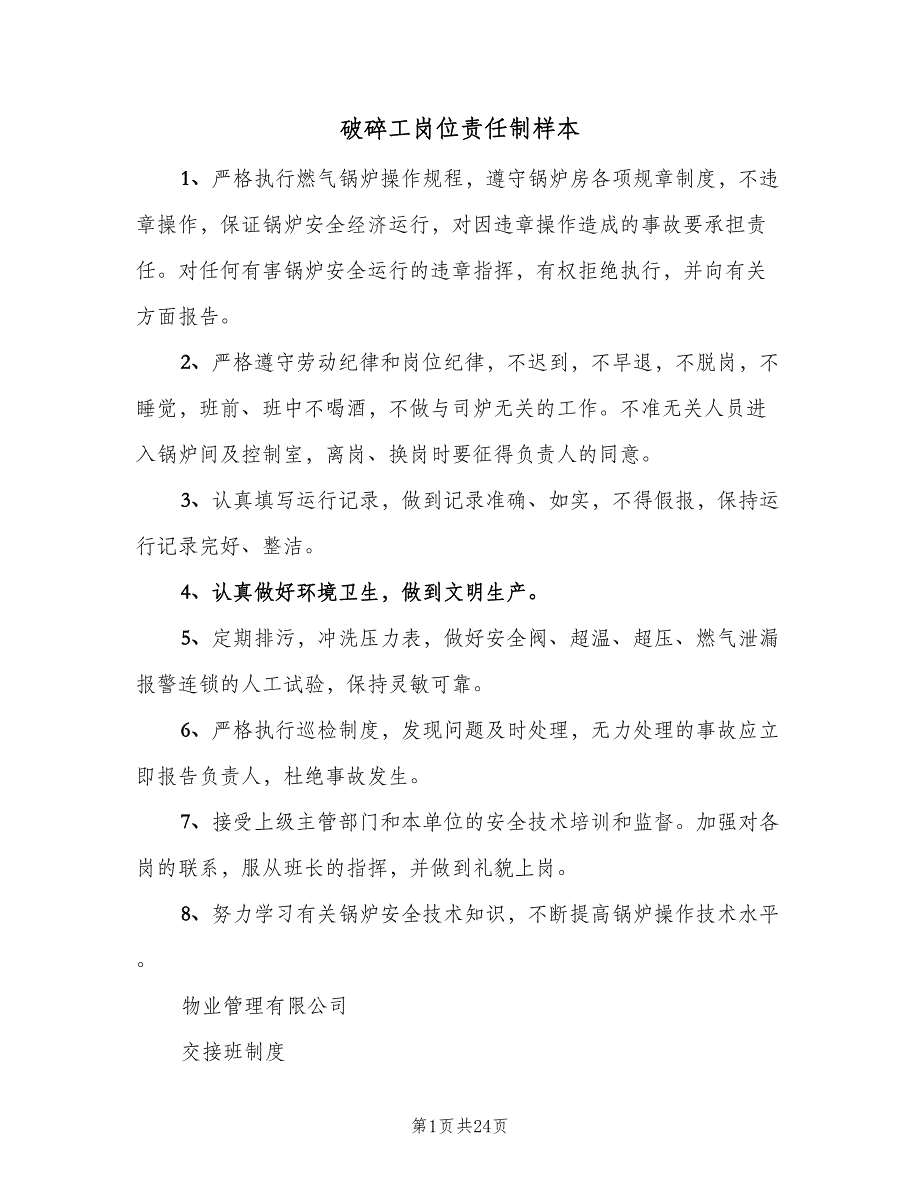 破碎工岗位责任制样本
1、严格执行燃气锅炉操作规程，遵守锅炉房各项规章制度，不违
章操作，保证锅炉安全经济运行，对因违章操作造成的事故要承担责
任。对任何有害锅炉安全运行的违章指挥，有权拒绝执行，并向有关
方面报告。
2、严格遵守劳动纪律和岗位纪律，不迟到，不早退，不脱岗，不
睡觉，班前、班中不喝酒，不做与司炉无关的工作。不准无关人员进
入锅炉间及控制室，离岗、换岗时要征得负责人的同意。
3、认真填写运行记录，做到记录准确、如实，不得假报，保持运
行记录完好、整洁。
4、认真做好环境卫生，做到文明生产。
5、定期排污，冲洗压力表，做好安全阀、超温、超压、燃气泄漏
报警连锁的人工试验，保持灵敏可靠。
6、严格执行巡检制度，发现问题及时处理，无力处理的事故应立
即报告负责人，杜绝事故发生。
7、接受上级主管部门和本单位的安全技术培训和监督。加强对各
岗的联系，服从班长的指挥，并做到礼貌上岗。
8、努力学习有关锅炉安全技术知识，不断提高锅炉操作技术水平
。
物业管理有限公司
交接班制度
第1页共24页